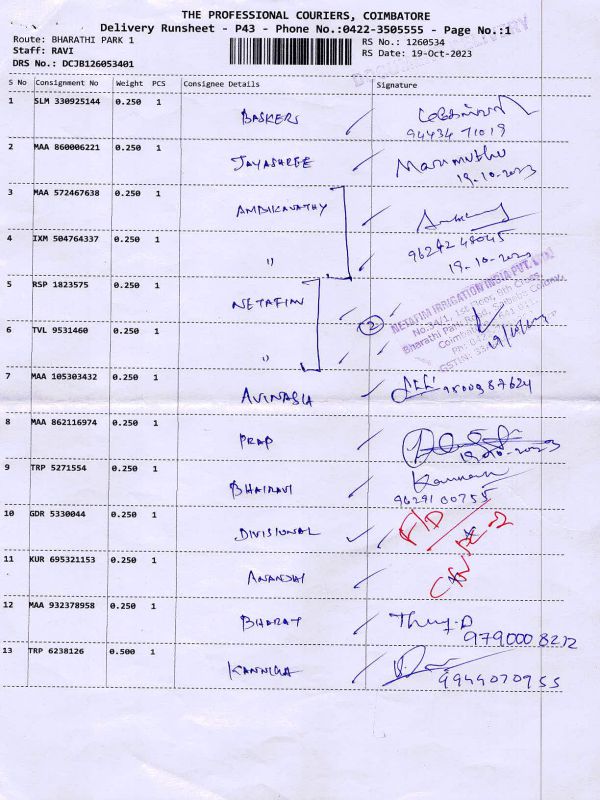 THE PROFESSIONAL COURIERS, COIMBATORE
Delivery Runsheet - P43 - Phone No.:0422-3505555 - Page No.:1
Route: BHARATHI PARK 1
RS No.: 1260534
Staff: RAVI
RS Date: 19-Oct-2023
DRS No.: DCJB126053401
DELIVERY
S No Consignment No Weight PCS Consignee Details Signature
1 SLM 330925144 0.250 1 BASKERS
94434 71019
2 MAA 860006221 0.250 1 JAYASHREE Marimuthu
19-10-2023
3 MAA 572467638 0.250 1 AMBIKAVATHY
4 IXM 504764337 0.250 1 " 96242 48045
19-10-2023
5 RSP 1823575 0.250 1 NETAFIM
2
NETAFIM IRRIGATION INDIA PVT. LTD
Bharathi Park Road,
Coimbatore
6 TVL 9531460 0.250 1 "
7 MAA 105303432 0.250 1 AVINASIA 9500987624
8 MAA 862116974 0.250 1 PRAP
19-10-2023
9 TRP 5271554 0.250 1 BHAIRAVI Kannan
9629100755
10 GDR 5330044 0.250 1 DIVISIONAL
11 KUR 695321153 0.250 1 ANANDHI
12 MAA 932378958 0.250 1 BHARAT
9790008212
13 TRP 6238126 0.500 1 KANNIGA
9944070955